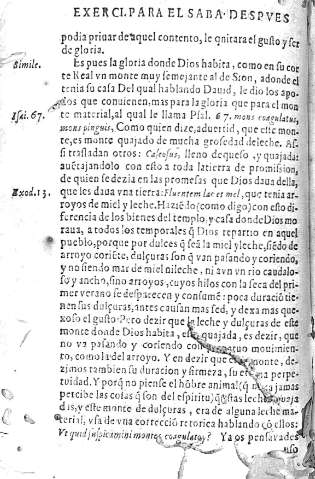 EXERCI. PARA EL SABA. DESPVES
podia priuar de aquel contento, le quitara el gusto y ser
de gloria.
Simile.
Es pues la gloria donde Dios habita, como en su cor
te Real vn monte muy semejante al de Sion, adonde el
tenia su casa Del qual hablando Dauid, le dio los apo
dos que conuienen, mas para la gloria que para el mon
Isai. 67.
te material, al qual le llama Psal. 67. mons coagulatus,
mons pinguis, Como quien dize, aduertid, que este mon-
te, es monte quajado de mucha grosedad de leche. As-
si trasladan otros: Caseosus, lleno de queso, y quajada:
auētajandolo con esto a toda la tierra de promision,
de quien se dezia en las promesas que Dios daua della,
Exod. 13.
que les daua vna tierra: Fluentem lac et mel, que tenia ar-
royos de miel y leche. Haziēdo (como digo) con esto di-
ferencia de los bienes del templo, y casa donde Dios mo
raua, a todos los temporales q̄ Dios repartio en aquel
pueblo, porque por dulces q̄ seā la miel y leche, siēdo de
arroyo coriēte, dulçuras son q̄ van pasando y coriendo,
y no siendo mar de miel ni leche, ni avn vn rio caudalo-
so y ancho, sino arroyos, cuyos hilos con la seca del pri-
mer verano se despacecen y consumē: poca duraciō tie
nen sus dulçuras, antes causan mas sed, y dexa mas que-
xoso el gusto. Pero dezir que la leche y dulçuras de este
monte donde Dios habita, es quajada, es dezir, que
no va pasando y coriendo con tuo mouimien-
to, como la del arroyo. Y en dezir que es monte, de-
zimos tambien su duracion y firmeza, su et a perpe-
tuidad. Y porq̄ no piense el hōbre animal (q̄ n a jamas
percibe las cosas q̄ son del espiritu) q̄ estas leches quaja
das, y este monte de dulçuras, era de alguna leche ma-
terial, vsa de vna correcciō retorica hablando cō ellos:
Vt quid suspicamini montes coagulatos? Ya os pensauades
uso